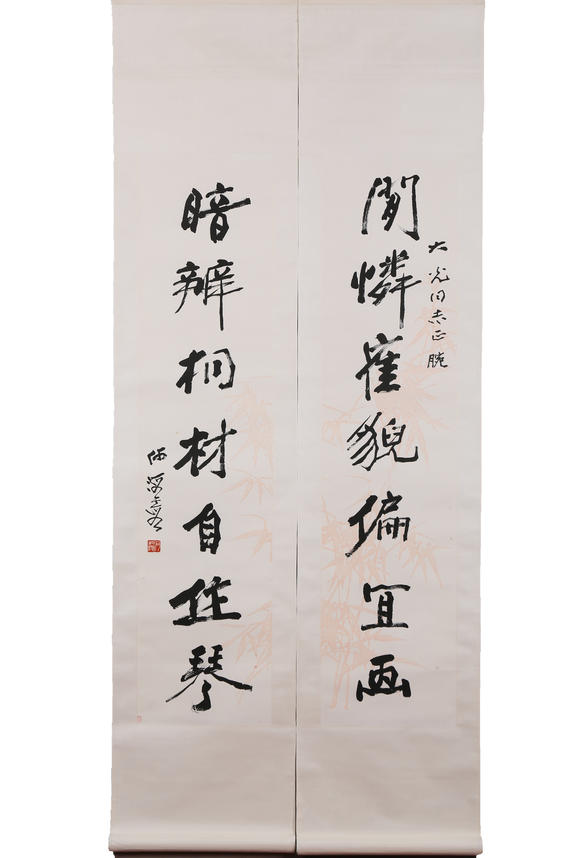 閒憐隺貌偏宜画
大光同志正腕
暗辨桐材自琴